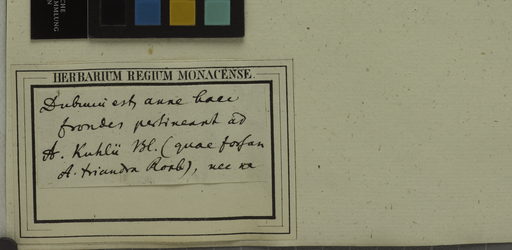 CHE
MMLUNG
EN
HERBARIUM REGIUM MONACENSE.
Dubium est, anne haec
frondes pertineant ad
A. Kuhlii Bl. (quae forsan
A. triandra Roxb), nec